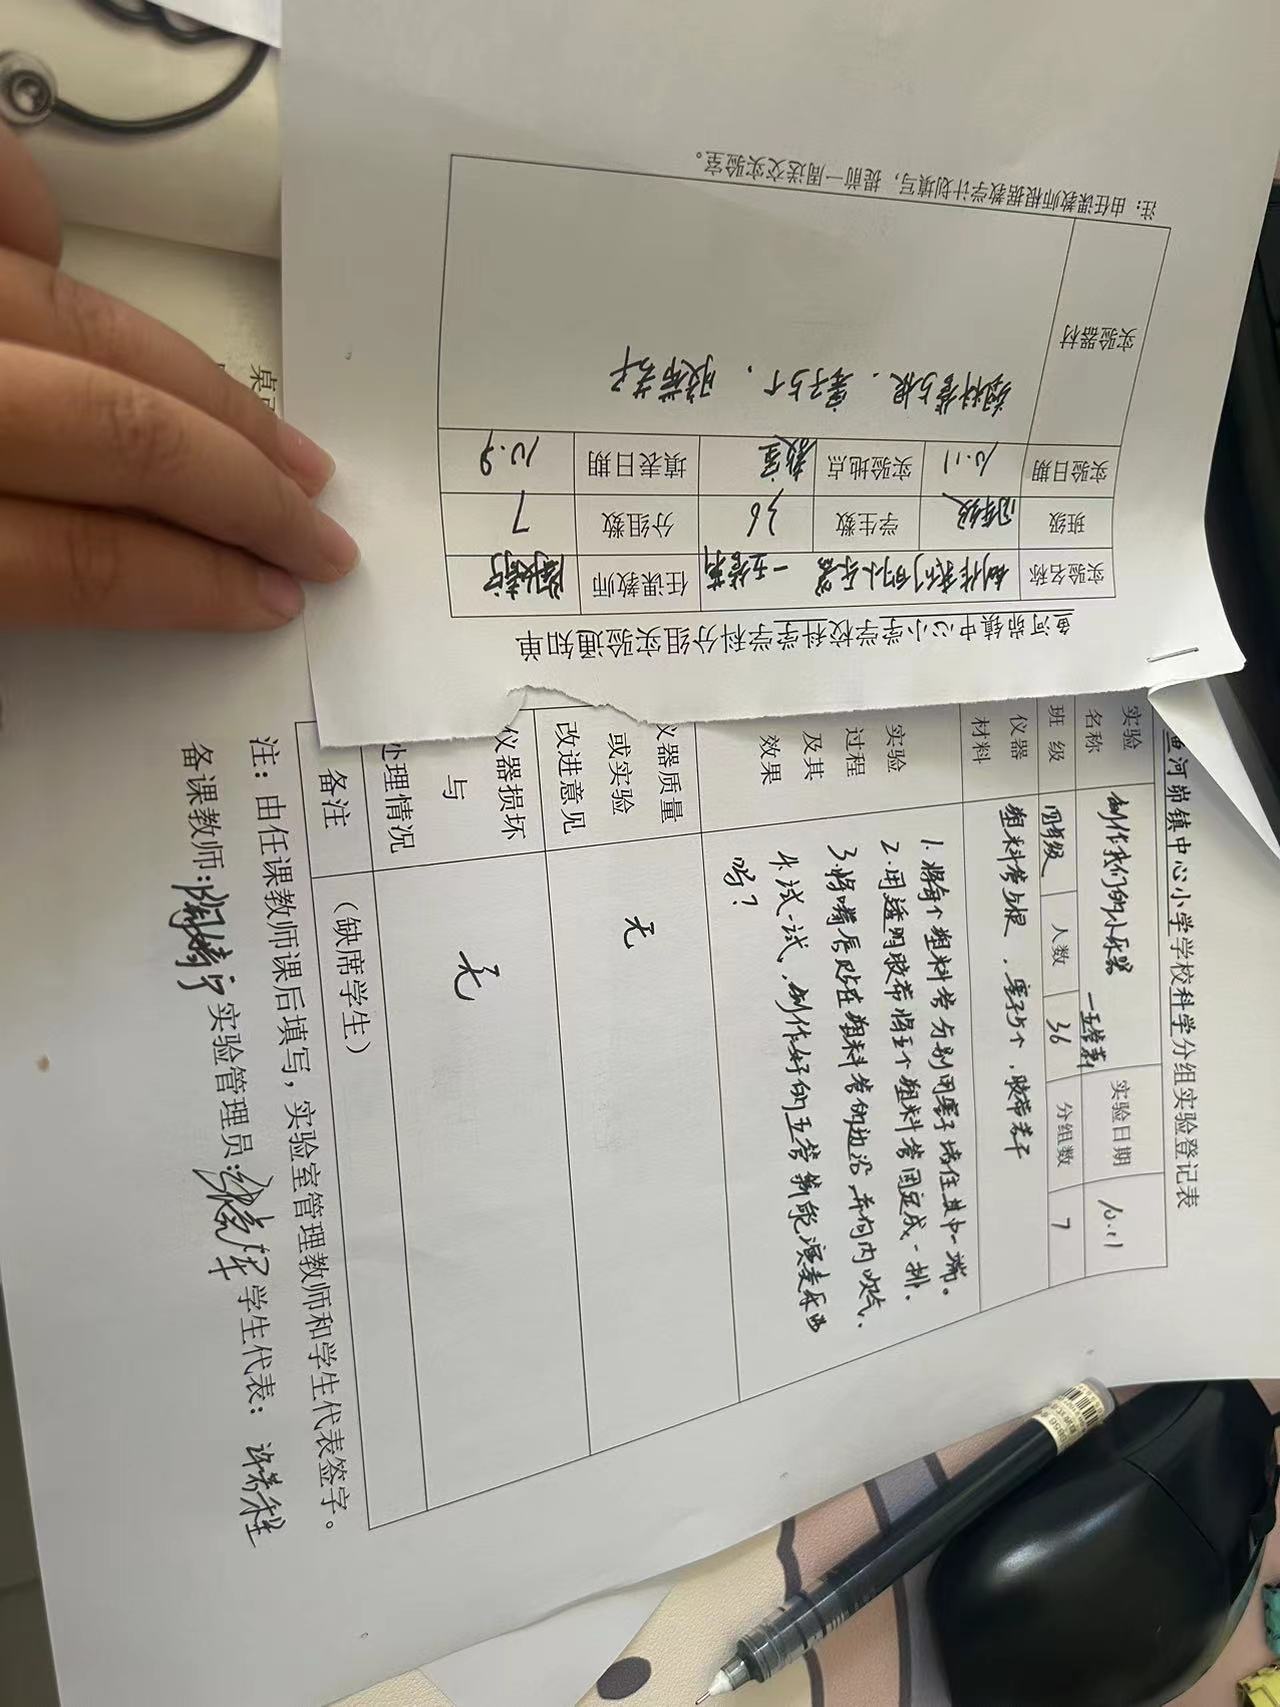 鱼河峁镇中心小学学校科学学科分组实验通知单
实验名称 制作我们的小乐器 一五管箫 任课教师
班级 四年级 学生数 36 分组数 7
实验日期 10.11 实验地点 教室 填表日期 10.9
实验器材 塑料管5根、塞子5个、胶带若干
注：由任课教师根据教学计划填写，提前一周送交实验室。
鱼河峁镇中心小学学校科学分组实验登记表
实验名称 制作我们的小乐器 一五管箫 实验日期 10.11
班级 四年级 人数 36 分组数 7
仪器材料 塑料管5根、塞子5个、胶带若干
实验过程及其效果
1.将每个塑料管分别用塞子堵住其中一端。
2.用透明胶带将五个塑料管固定成一排。
3.将嘴唇贴在塑料管的边沿，并向内吹气。
4.试一试，制作好的五管箫能演奏乐曲
吗？
仪器质量或实验改进意见 无
仪器损坏与处理情况 无
备注 （缺席学生）
注：由任课教师课后填写，实验室管理教师和学生代表签字。
备课教师： 实验管理员： 学生代表：
桌